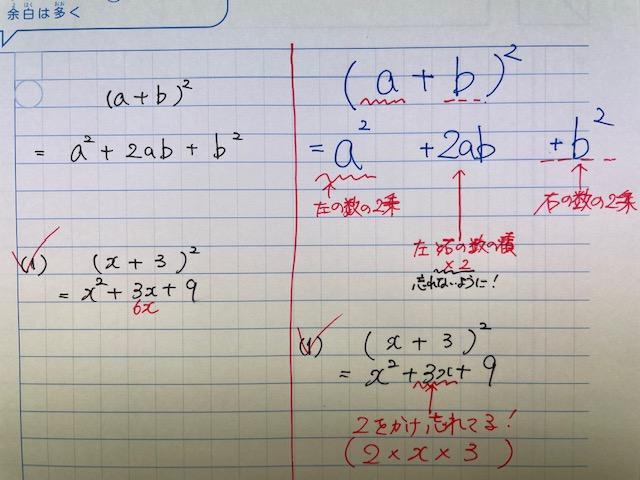 余白は多く
(a+b)²
= a²+2ab+b²
(1) (x+3)²
= x²+3x+9
6x
(a+b)²
=a² +2ab +b²
左の数の2乗
右の数の2乗
左と右の数の積
×2
忘れないように!
(1) (x+3)²
= x²+3x+9
2をかけ忘れてる!
(2×x×3)